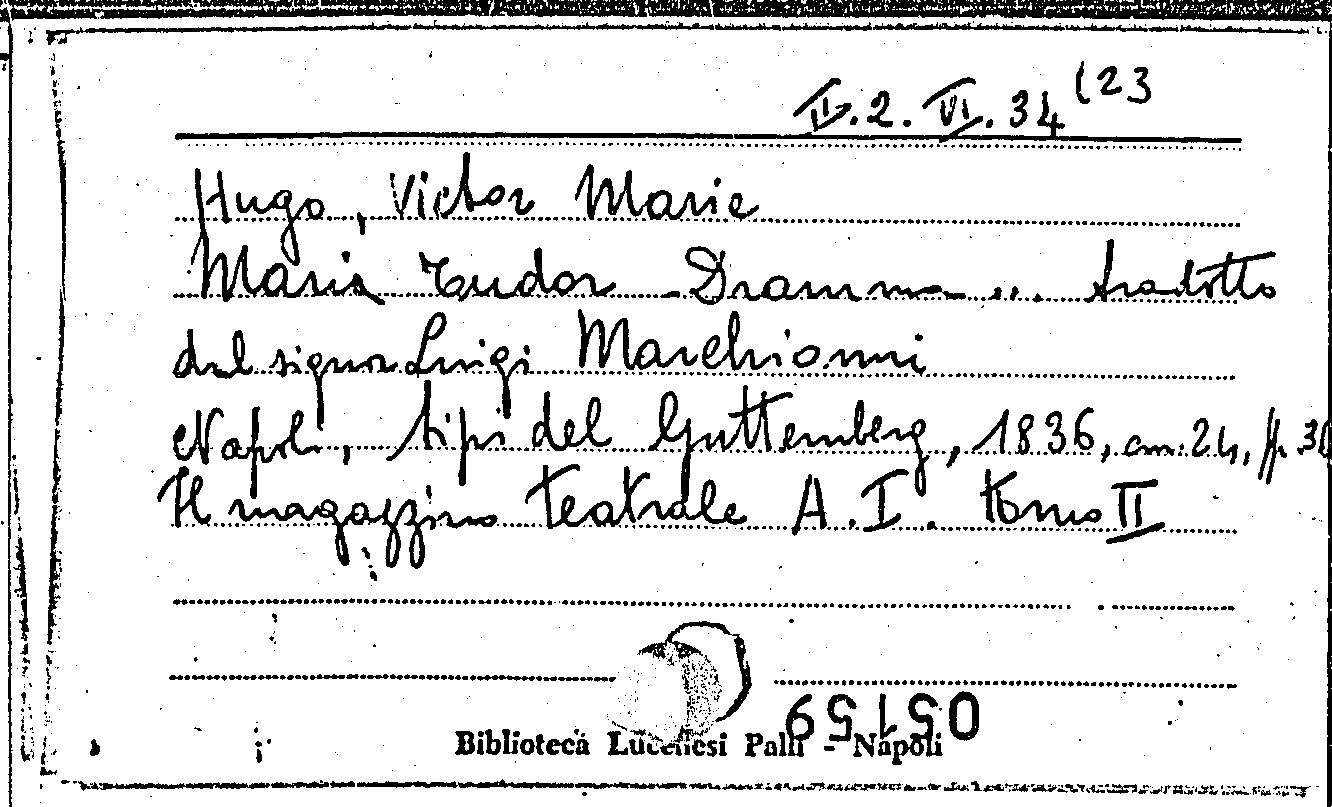 IV.2.VI.34(23
Hugo, Victor Marie
Maria Tudor Dramma ... tradotto
dal signor Luigi Marchionni
Napoli, tipi del Guttemberg, 1836, cm. 24, pp. 30
Il magazzino teatrale A.I. tomo II
05159
Biblioteca Lucchesi Palli - Napoli